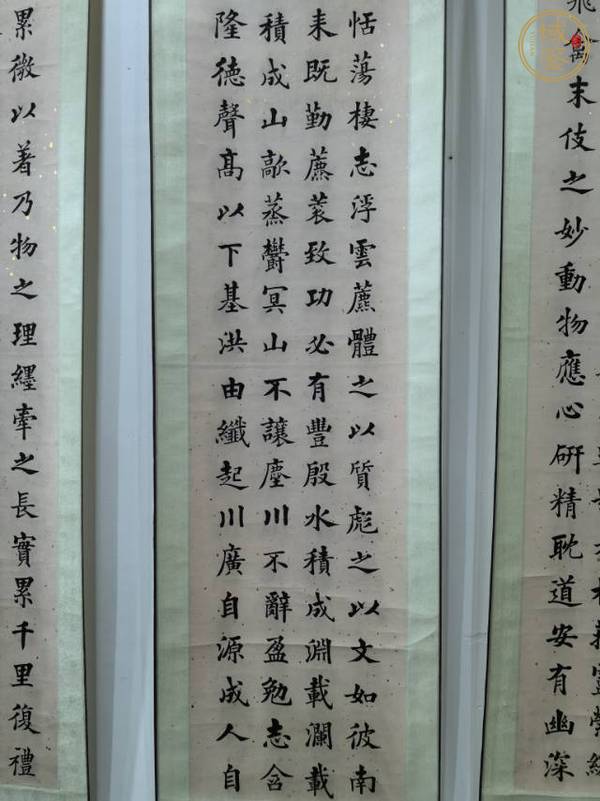 末伎之妙動物應心研精耽道安有幽深
恬蕩棲志浮雲藨體之以質彪之以文如彼南
耒既勤藨蓘致功必有豐殷水積成淵載瀾載
積成山歊蒸鬱冥山不讓塵川不辭盈勉志含
隆德聲高以下基洪由纖起川廣自源成人自
累微以著乃物之理纆牽之長實累千里復禮